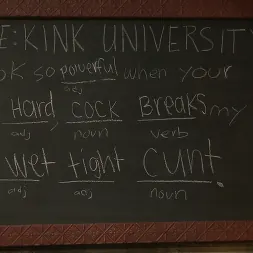 E:KINK UNIVERSITY
OK so powerful when your
adj
Hard, COCK BReaks my
adj noun verb
wet tight cunt.
adj adj noun